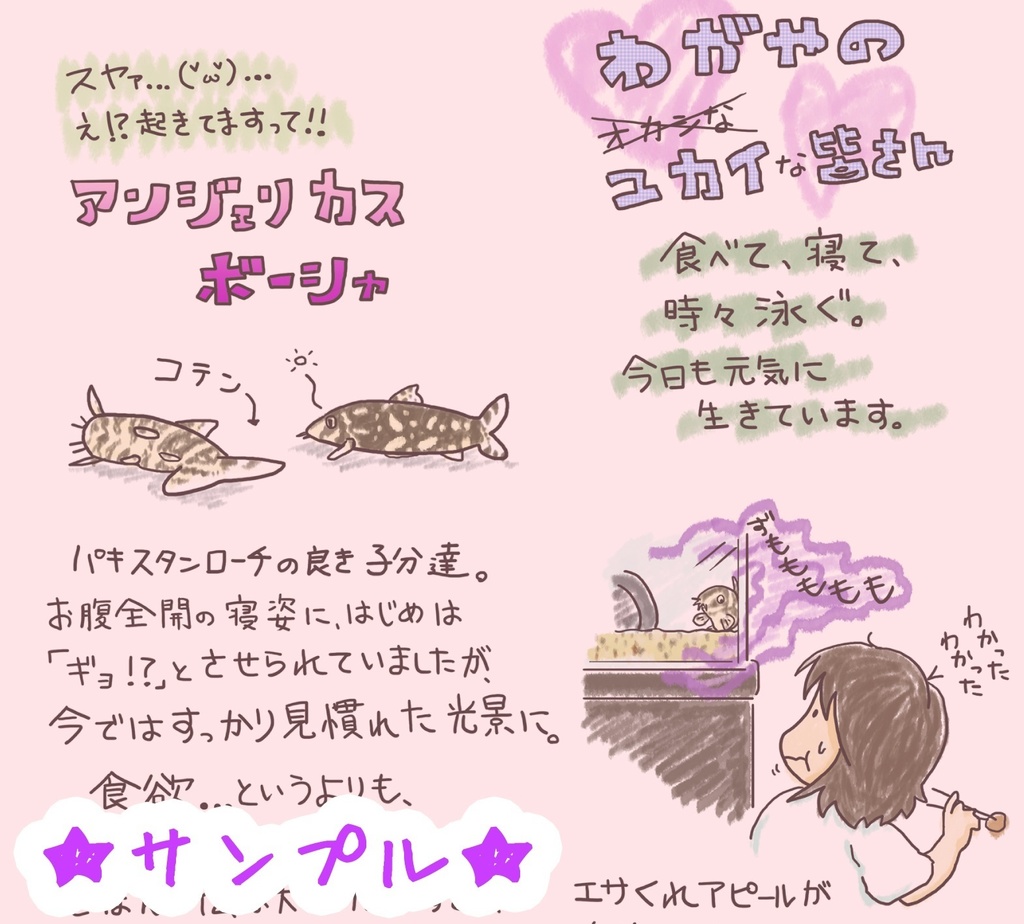 わがやの
オカシな
ユカイな皆さん
食べて、寝て、
時々泳ぐ。
今日も元気に
生きています。
ずももももももも
わかった
わかった
エサくれアピールが
スヤァ...(˘ω˘)...
え!?起きてますって!!
アンジェリカス
ボーシャ
コテン
パキスタンローチの良き子分達。
お腹全開の寝姿に、はじめは
「ギョ!?」とさせられていましたが、
今ではすっかり見慣れた光景に。
食欲...というよりも、
★サンプル★